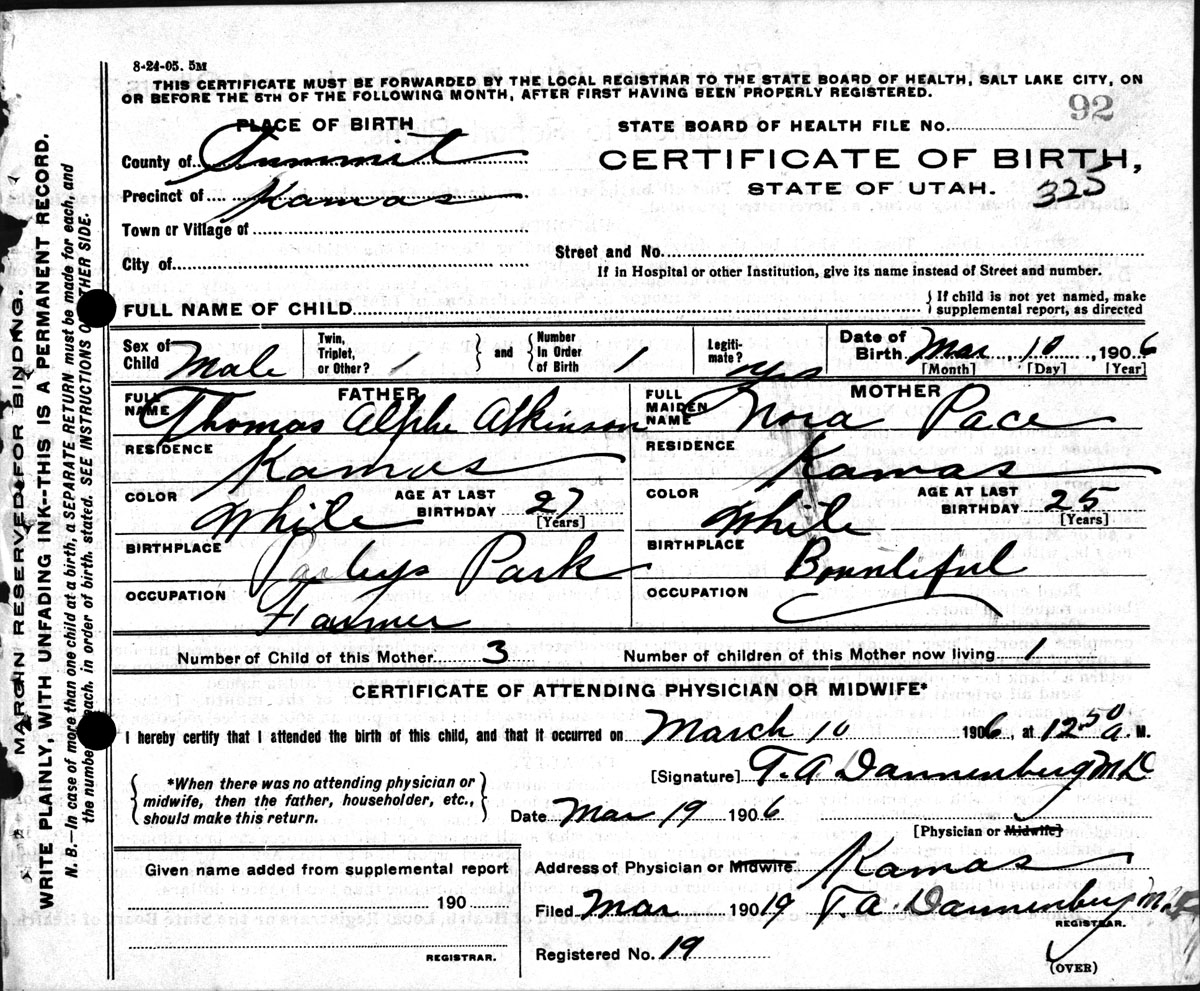 8-24-05. 5M
THIS CERTIFICATE MUST BE FORWARDED BY THE LOCAL REGISTRAR TO THE STATE BOARD OF HEALTH, SALT LAKE CITY, ON
OR BEFORE THE 5TH OF THE FOLLOWING MONTH, AFTER FIRST HAVING BEEN PROPERLY REGISTERED.
PLACE OF BIRTH
STATE BOARD OF HEALTH FILE No. 92
County of Summit
CERTIFICATE OF BIRTH,
Precinct of Kamas
STATE OF UTAH. 325
Town or Village of
Street and No.
City of
If in Hospital or other Institution, give its name instead of Street and number.
FULL NAME OF CHILD
{ If child is not yet named, make
supplemental report, as directed
Sex of Child Male
Twin, Triplet, or Other? 1 } and { Number In Order of Birth 1
Legitimate? yes
Date of Birth Mar 10, 1906
[Month] [Day] [Year]
FATHER
FULL NAME Thomas Alpha Atkinson
RESIDENCE Kamas
COLOR White AGE AT LAST BIRTHDAY 27 [Years]
BIRTHPLACE Parleys Park
OCCUPATION Farmer
MOTHER
FULL MAIDEN NAME Nora Pace
RESIDENCE Kamas
COLOR White AGE AT LAST BIRTHDAY 25 [Years]
BIRTHPLACE Bountiful
OCCUPATION
Number of Child of this Mother 3 Number of children of this Mother now living 1
CERTIFICATE OF ATTENDING PHYSICIAN OR MIDWIFE*
I hereby certify that I attended the birth of this child, and that it occurred on March 10 1906, at 12 50 a. M.
{ *When there was no attending physician or
midwife, then the father, householder, etc.,
should make this return. }
[Signature] T. A. Dannenberg M.D.
Date Mar 19 1906
[Physician or Midwife]
Given name added from supplemental report
190
REGISTRAR.
Address of Physician or Midwife Kamas
Filed Mar 190 19 T. A. Dannenberg M.D.
REGISTRAR.
Registered No. 19
(OVER)
MARGIN RESERVED FOR BINDING.
WRITE PLAINLY, WITH UNFADING INK--THIS IS A PERMANENT RECORD.
N. B.—In case of more than one child at a birth, a SEPARATE RETURN must be made for each, and
the number of each, in order of birth, stated. SEE INSTRUCTIONS ON OTHER SIDE.